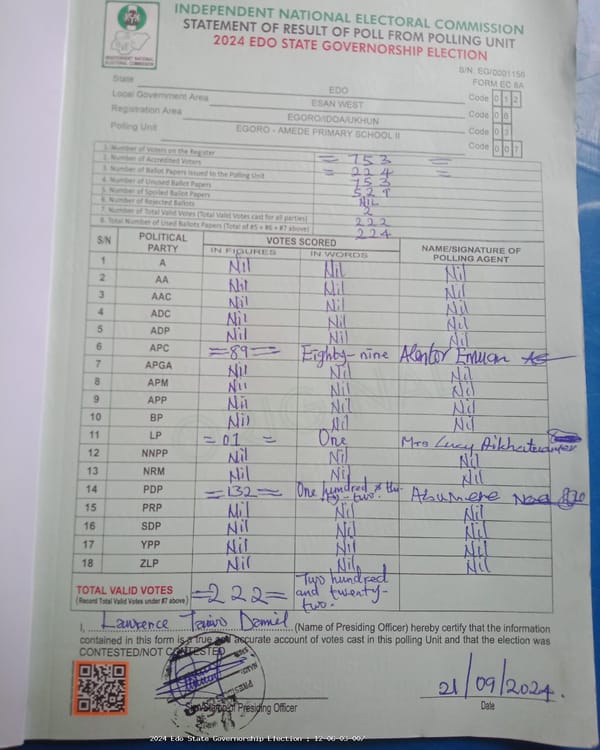 INDEPENDENT NATIONAL ELECTORAL COMMISSION
STATEMENT OF RESULT OF POLL FROM POLLING UNIT
2024 EDO STATE GOVERNORSHIP ELECTION
INDEPENDENT NATIONAL ELECTORAL COMMISSION
S/N. EG/0001156
FORM EC 8A
State EDO Code 0 1 2
Local Government Area ESAN WEST Code 0 6
Registration Area EGORO/IDOA/UKHUN Code 0 3
Polling Unit EGORO - AMEDE PRIMARY SCHOOL II Code 0 0 7
1. Number of Voters on the Register = 753 =
2. Number of Accredited Voters = 224 =
3. Number of Ballot Papers Issued to the Polling Unit 753
4. Number of Unused Ballot Papers 529
5. Number of Spoiled Ballot Papers Nil
6. Number of Rejected Ballots 2
7. Number of Total Valid Votes (Total Valid Votes cast for all parties) 222
8. Total Number of Used Ballots Papers (Total of #5 + #6 + #7 above) 224
S/N POLITICAL PARTY VOTES SCORED NAME/SIGNATURE OF POLLING AGENT
IN FIGURES IN WORDS
1 A Nil Nil Nil
2 AA Nil Nil Nil
3 AAC Nil Nil Nil
4 ADC Nil Nil Nil
5 ADP Nil Nil Nil
6 APC =89= Eighty-nine
7 APGA Nil Nil Nil
8 APM Nil Nil Nil
9 APP Nil Nil Nil
10 BP Nil Nil Nil
11 LP = 01 = One Mrs Lucy
12 NNPP Nil Nil Nil
13 NRM Nil Nil Nil
14 PDP =132= One hundred & thirty-two.
15 PRP Nil Nil Nil
16 SDP Nil Nil Nil
17 YPP Nil Nil Nil
18 ZLP Nil Nil Nil
TOTAL VALID VOTES =222= Two hundred and twenty-two.
(Record Total Valid Votes under #7 above)
I, Lawrence Daniel (Name of Presiding Officer) hereby certify that the information
contained in this form is a true and accurate account of votes cast in this polling Unit and that the election was
CONTESTED/NOT CONTESTED
21/09/2024.
Sign/Stamp of Presiding Officer Date
2024 Edo State Governorship Election : 12-06-03-007